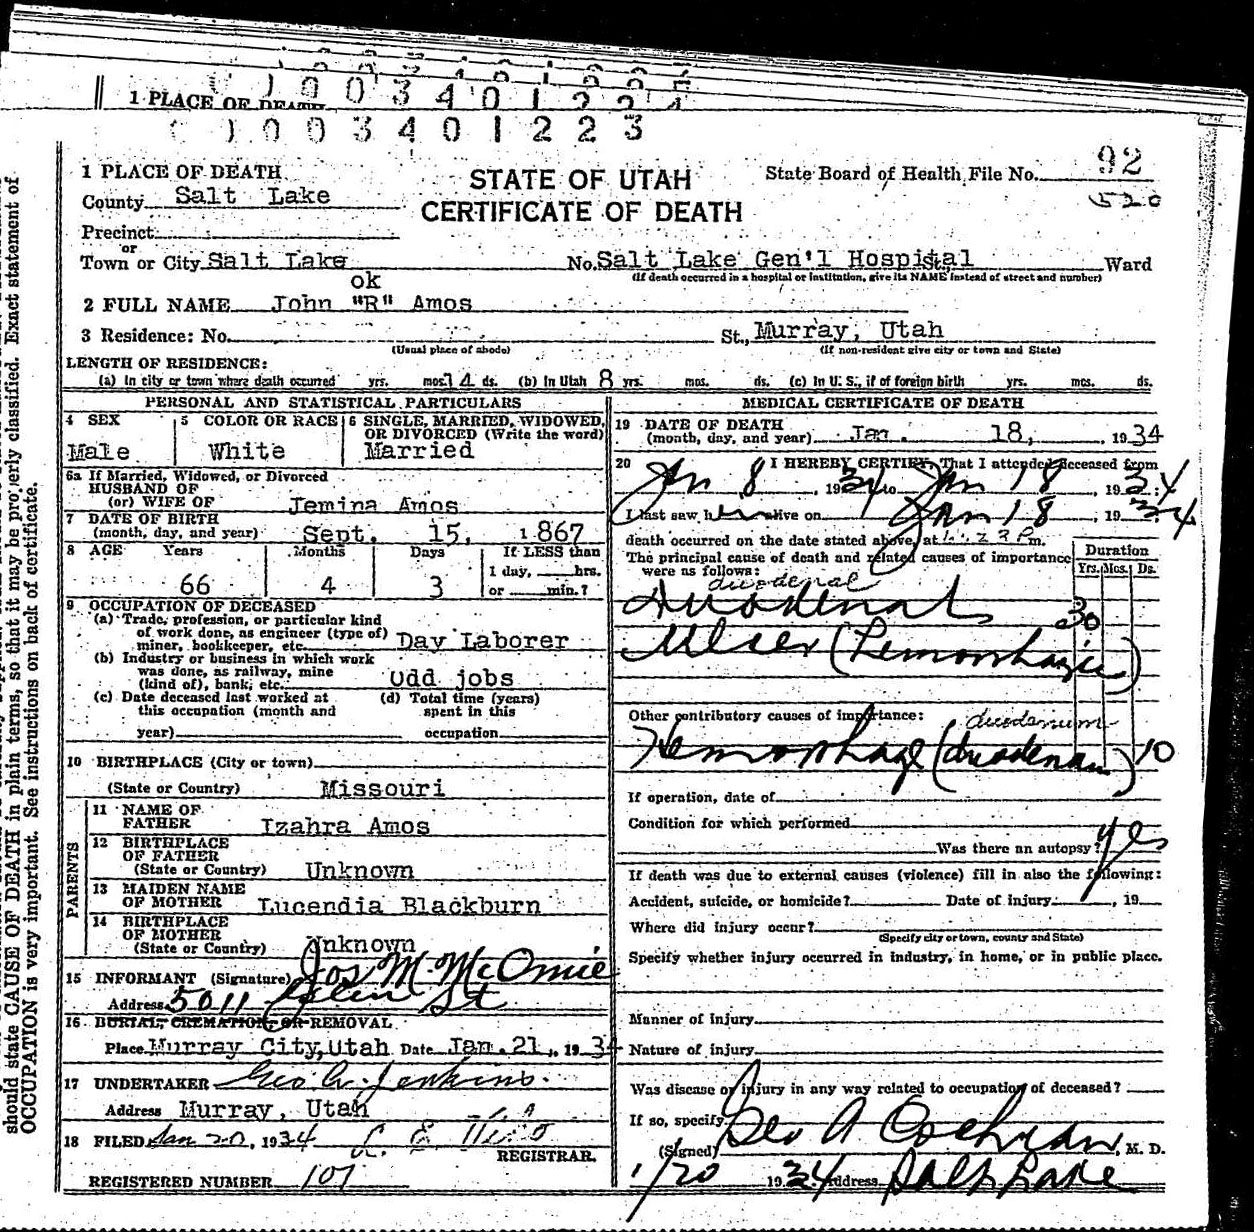 1 PLACE OF DEATH
0 0 3 4 0 1 2 2 3
1 PLACE OF DEATH
County Salt Lake
Precinct
or
Town or City Salt Lake
STATE OF UTAH
CERTIFICATE OF DEATH
State Board of Health File No. 92
520
No. Salt Lake Gen'l Hospital Ward
(If death occurred in a hospital or institution, give its NAME instead of street and number)
ok
2 FULL NAME John "R" Amos
3 Residence: No. St., Murray, Utah
(Usual place of abode) (If non-resident give city or town and State)
LENGTH OF RESIDENCE:
(a) In city or town where death occurred yrs. mos. 14 ds. (b) In Utah 8 yrs. mos. ds. (c) In U. S., if of foreign birth yrs. mos. ds.
PERSONAL AND STATISTICAL PARTICULARS
4 SEX Male
5 COLOR OR RACE White
6 SINGLE, MARRIED, WIDOWED, OR DIVORCED (Write the word) Married
6a If Married, Widowed, or Divorced
HUSBAND OF
(or) WIFE OF Jemina Amos
7 DATE OF BIRTH
(month, day, and year) Sept. 15, 1867
8 AGE Years Months Days If LESS than
1 day, hrs.
66 4 3 or min.?
9 OCCUPATION OF DECEASED
(a) Trade, profession, or particular kind
of work done, as engineer (type of)
miner, bookkeeper, etc. Day Laborer
(b) Industry or business in which work
was done, as railway, mine
(kind of), bank, etc. Odd jobs
(c) Date deceased last worked at
this occupation (month and
year)
(d) Total time (years)
spent in this
occupation
10 BIRTHPLACE (City or town)
(State or Country) Missouri
PARENTS
11 NAME OF
FATHER Izahra Amos
12 BIRTHPLACE
OF FATHER
(State or Country) Unknown
13 MAIDEN NAME
OF MOTHER Lucendia Blackburn
14 BIRTHPLACE
OF MOTHER
(State or Country) Unknown
15 INFORMANT (Signature) Jos M. McOmie
Address 5011 St
16 BURIAL, CREMATION, OR REMOVAL
Place Murray City, Utah Date Jan. 21, 1934
17 UNDERTAKER Geo. A. Jenkins.
Address Murray, Utah
18 FILED Jan 20, 1934
REGISTRAR.
REGISTERED NUMBER 107
MEDICAL CERTIFICATE OF DEATH
19 DATE OF DEATH
(month, day, and year) Jan. 18, 1934
20 I HEREBY CERTIFY, That I attended deceased from
Jan 8, 1934 to Jan 18, 1934
I last saw him alive on Jan 18, 1934
death occurred on the date stated above, at m.
The principal cause of death and related causes of importance
were as follows:
Duration
Yrs. Mos. Ds.
duodenal
Duodenal 30
Ulcer (Hemorrhagic)
Other contributory causes of importance:
duodenum
Hemorrhage (duodenum) 10
If operation, date of
Condition for which performed
Was there an autopsy? Yes
If death was due to external causes (violence) fill in also the following:
Accident, suicide, or homicide? Date of injury , 19
Where did injury occur?
(Specify city or town, county and State)
Specify whether injury occurred in industry, in home, or in public place.
Manner of injury
Nature of injury
Was disease or injury in any way related to occupation of deceased?
If so, specify
(Signed) Geo A Cochran, M. D.
1/20 1934 Address Salt Lake
should state CAUSE OF DEATH in plain terms, so that it may be properly classified. Exact statement of
OCCUPATION is very important. See instructions on back of certificate.